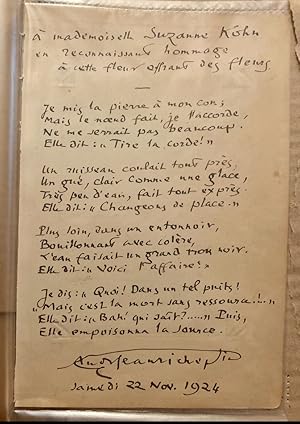 A mademoiselle Suzanne Köhn
en reconnaissant hommage
à cette fleur offrant des fleurs.
Je mis la pierre à mon cou;
Mais le nœud fait, je l'accorde,
Ne me serrait pas beaucoup.
Elle dit: « Tire la corde! »
Un ruisseau coulait tout près,
Un gué, clair comme une glace,
Très peu d'eau, fait tout exprès.
Elle dit: « Changeons de place. »
Plus loin, dans un entonnoir,
Bouillonnant avec colère,
L'eau faisait un grand trou noir.
Elle dit: « Voici l'affaire! »
Je dis: « Quoi! Dans un tel puits!
« Mais c'est la mort sans ressource!...»
Elle dit: « Bah! qui sait?.....» Puis,
Elle empoisonna la source.
Samedi 22 Nov. 1924